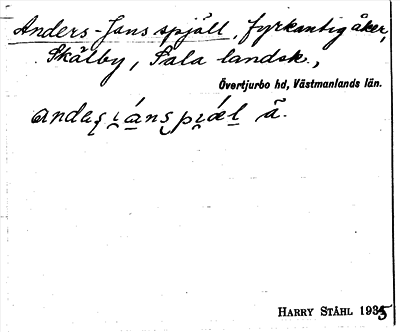 Anders-Jans spjäll, fyrkantig åker,
Skälby, Sala landsk.,
Övertjurbo hd, Västmanlands län.
HARRY STÅHL 1935